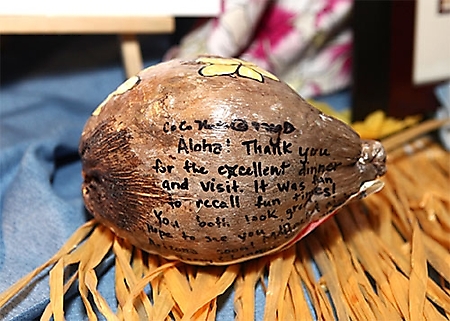 Aloha! Thank you
for the excellent dinner
and visit. It was fun
to recall fun times!
You both look great!
Hope to see you